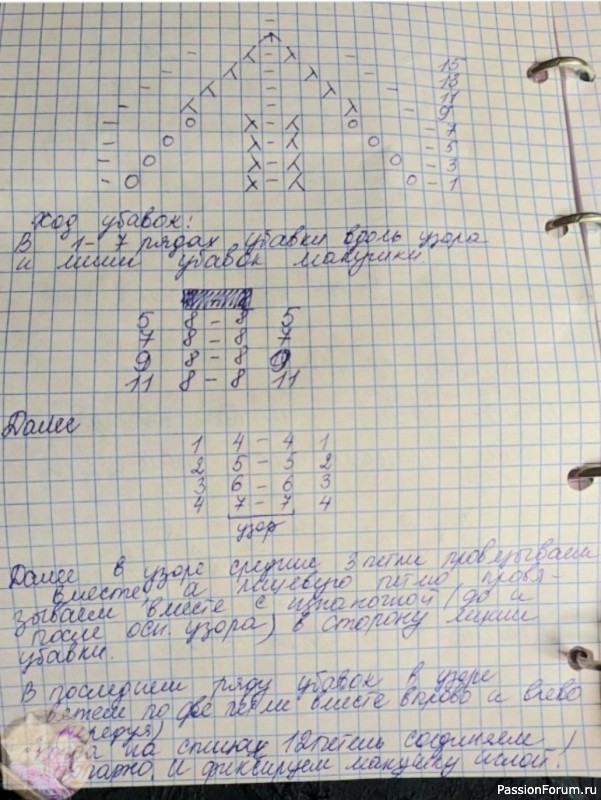 15
13
11
9
7
5
3
1
Ход убавок:
В 1-7 рядах убавки вдоль узора
и линии убавок макушки
5 8 - 8 5
7 8 - 8 7
9 8 - 8 9
11 8 - 8 11
Далее
1 4 - 4 1
2 5 - 5 2
3 6 - 6 3
4 7 - 7 4
узор
Далее в узоре средние 3 петли провязываем
вместе а лицевую петлю провя-
зываем вместе с изнаночной (до и
после осн. узора) в сторону линии
убавки.
В последнем ряду убавок в узоре
вяжем по две петли вместе вправо и влево
на спицах 12 петель соединяем
и фиксируем макушку иглой!
PassionForum.ru